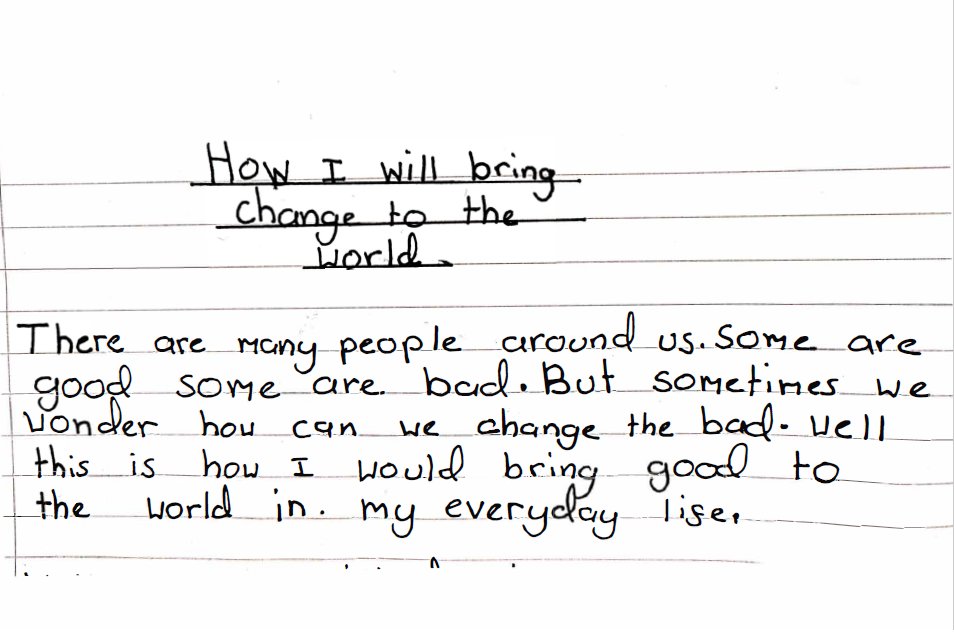 How I will bring
change to the
world.
There are many people around us. Some are
good some are. bad. But sometimes we
wonder how can we change the bad. Well
this is how I would bring good to
the world in. my everyday life.